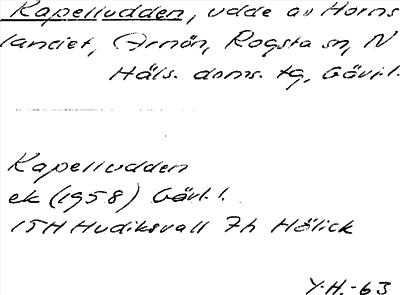 Kapelludden, udde av Horns
landet, Arnön, Rogsta sn, N
Häls. doms. tg, Gävl.l.
Kapelludden
ek (1958) Gävl.l.
15H Hudiksvall 7h Hölick
Y.H.-63